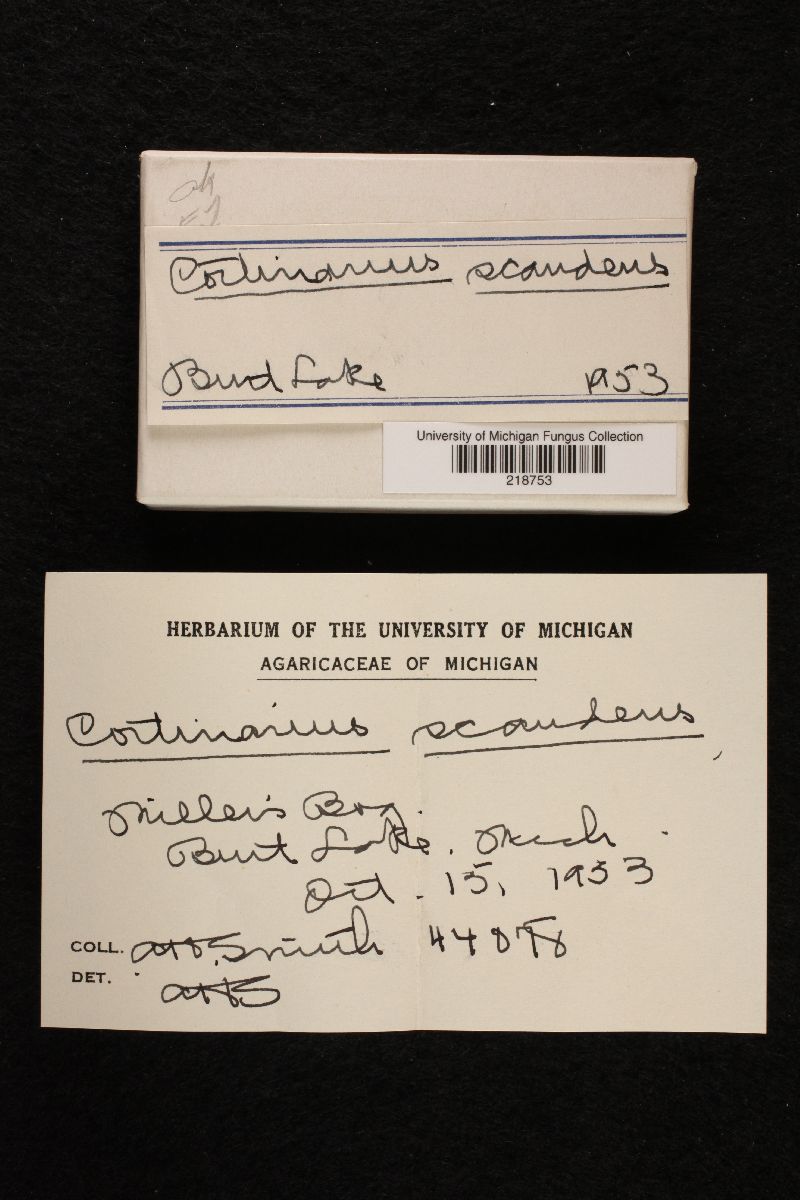 ok
=1
Cortinarius scandens
Burt Lake 1953
University of Michigan Fungus Collection
218753
HERBARIUM OF THE UNIVERSITY OF MICHIGAN
AGARICACEAE OF MICHIGAN
Cortinarius scandens
Miller's Bog.
Burt Lake, Mich.
Oct. 15, 1953
COLL. AH Smith
DET. AHS